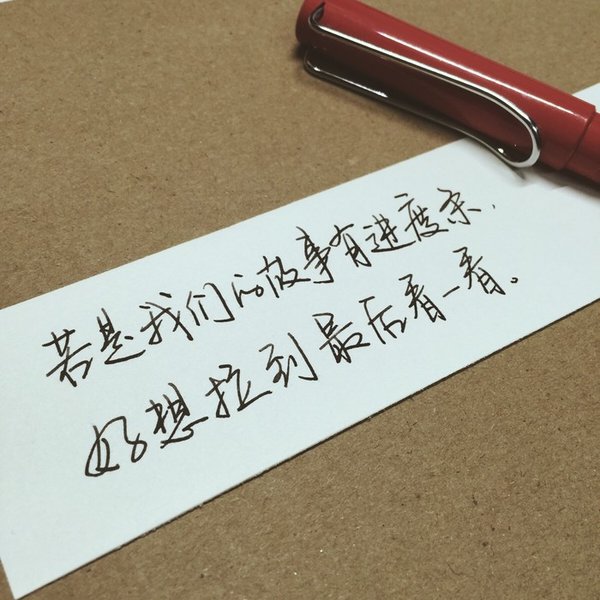 若是我们的故事有进度条，
好想拉到最后看一看。